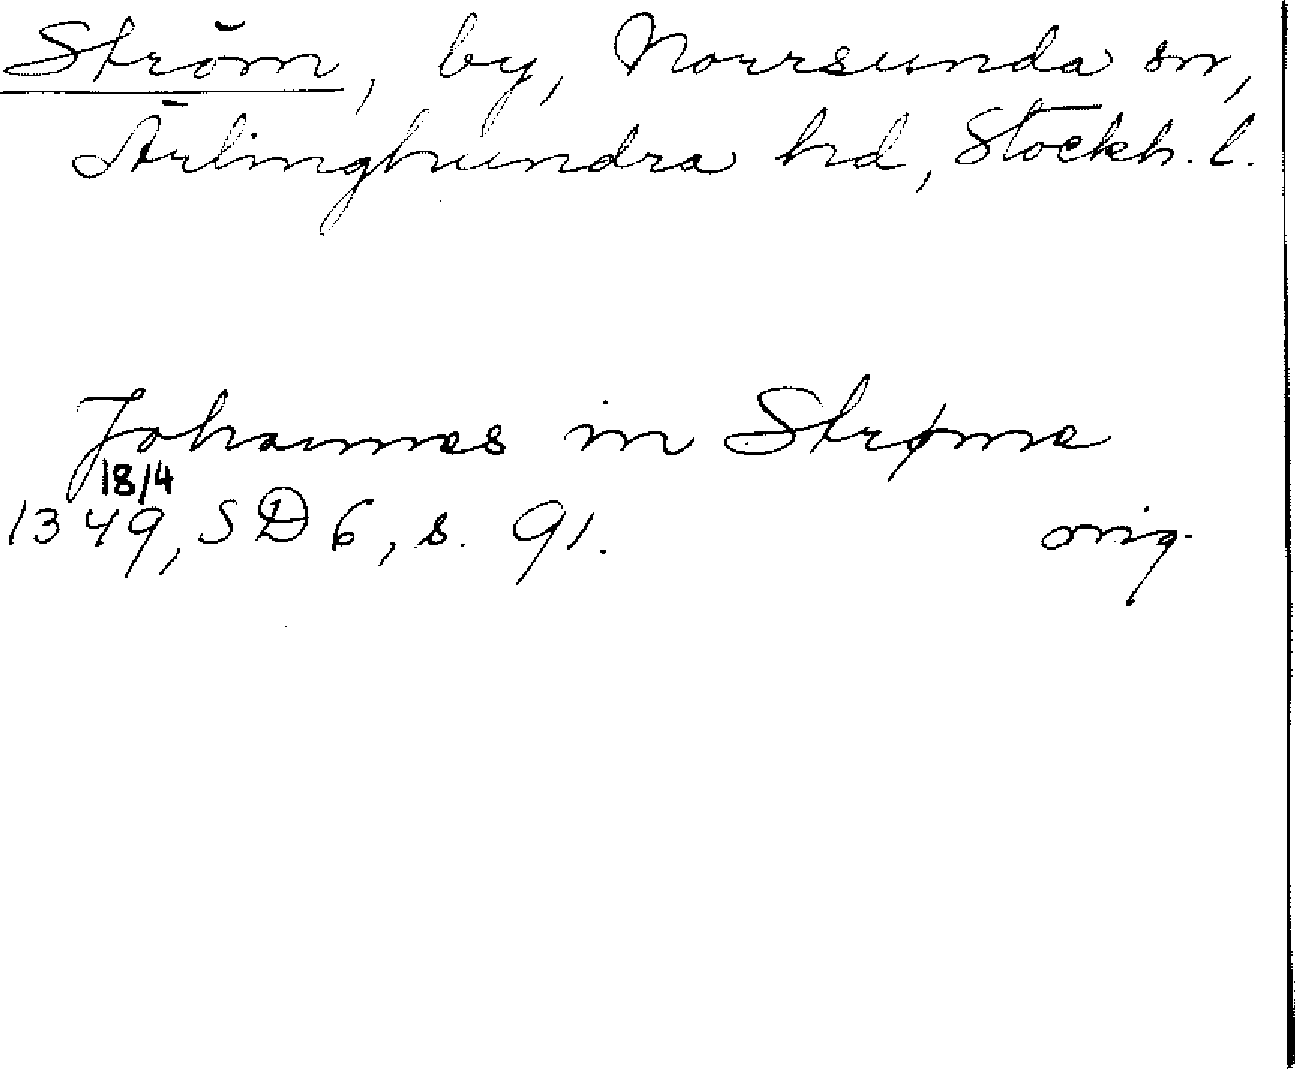 Ström, by, Norrsunda sn,
Ärlinghundra hd, Stockh. l.
Johannes in Strøme
18/4
1349, SD 6, s. 91. orig.